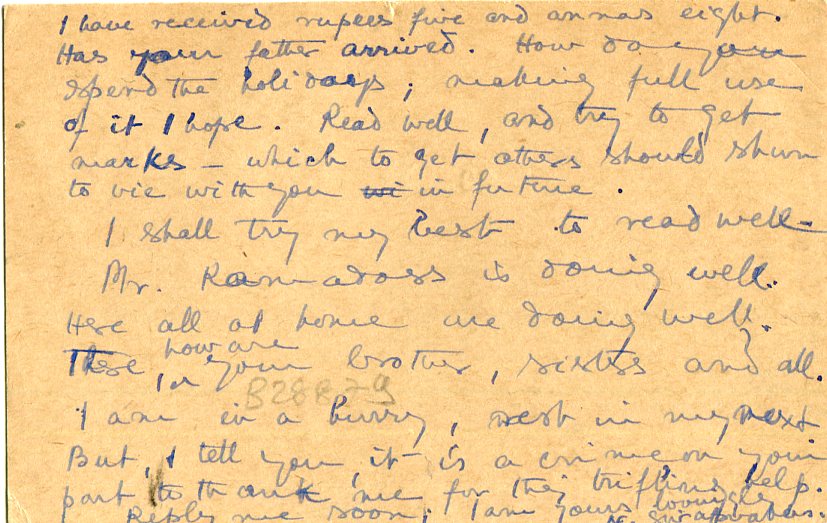 I have received rupees five and annas eight.
Has your father arrived. How do you
spend the holidays; making full use
of it I hope. Read well, and try to get
marks – which to get others should shun
to vie with you in future.
I shall try my best to read well –
Mr. Ramadoss is doing well.
Here all at home are doing well.
how are
There, your brother, sisters and all.
B28R79
I am in a hurry, rest in my next
But, I tell you, it is a crime on your
part to thank me for this trifling help.
Reply me soon; I am yours lovingly